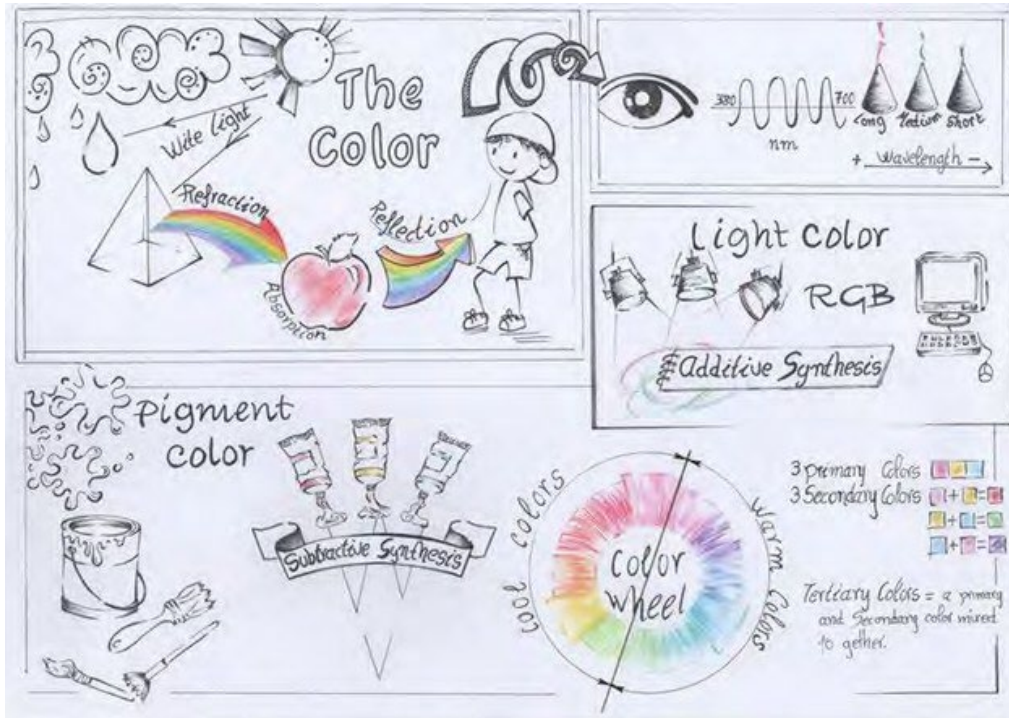 The
Color
Wite light
Refraction
Reflection
Absorption
380
700
nm
Long
Medium
Short
+ Wavelength -
Light Color
RGB
Additive Synthesis
Pigment
Color
Subtractive Synthesis
Cool Colors
Warm Colors
Color
Wheel
3 primary Colors
3 Secondary Colors
+ =
+ =
+ =
Tertiary Colors = a primary
and Secondary color mixed
to gether.